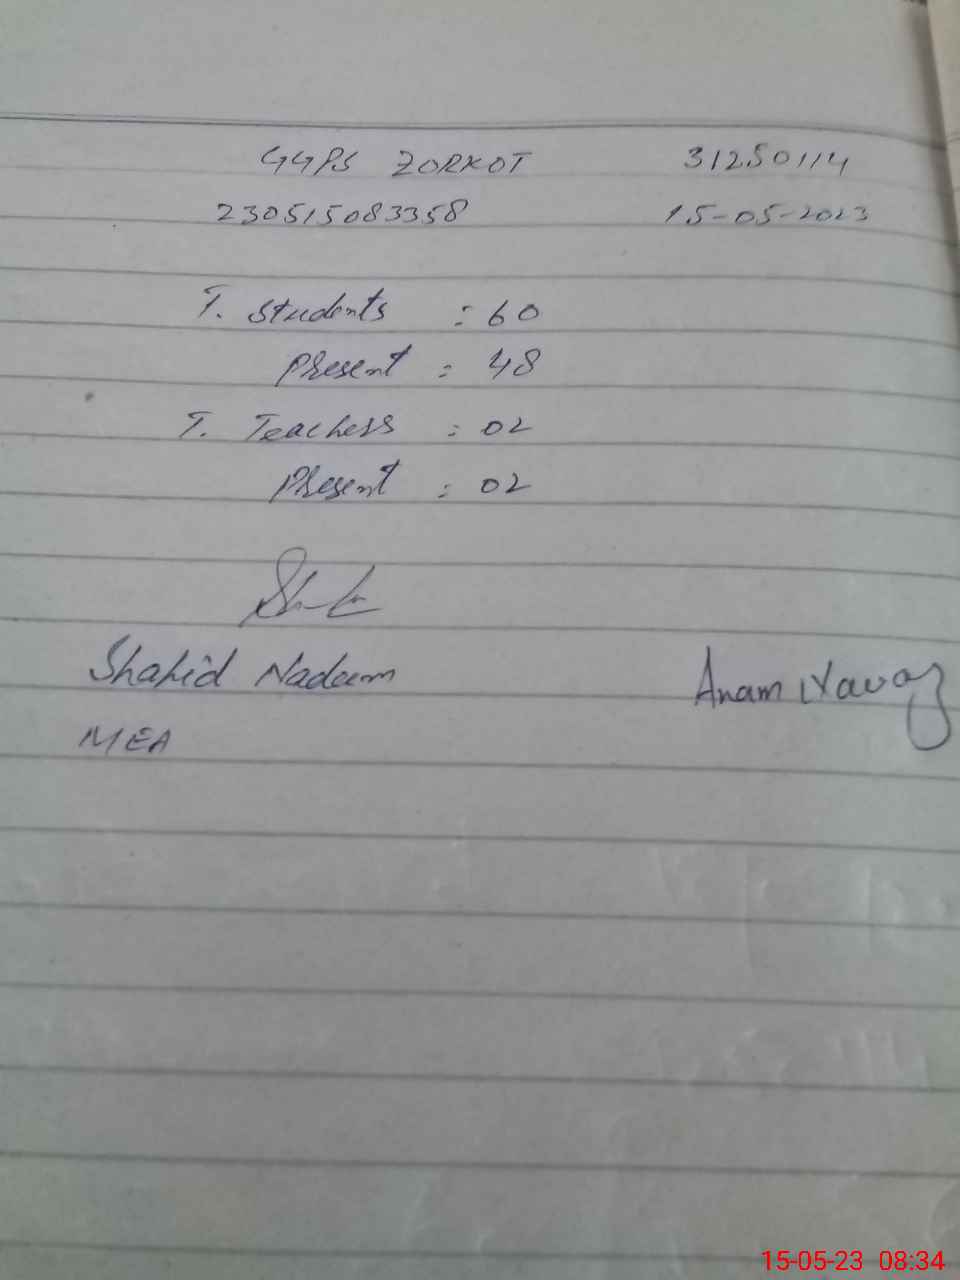 GGPS ZORKOT 31250114
230515083358 15-05-2023
T. Students : 60
Present : 48
T. Teachers : 02
Present : 02
Shahid Nadeem Anam Nawaz
MEA
15-05-23 08:34